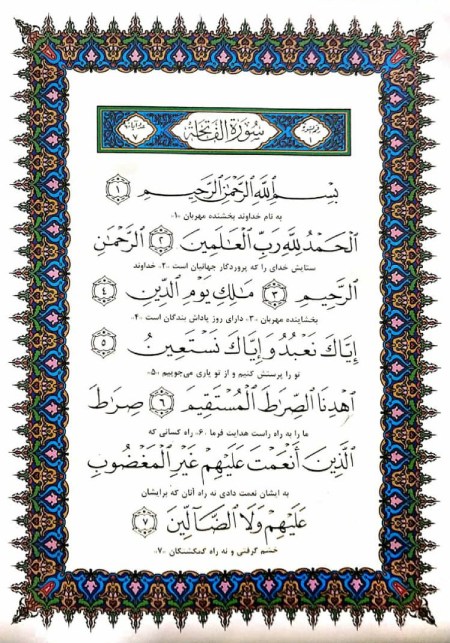 سُورَةُ الفَاتِحَةِ
بِسْمِ ٱللَّهِ ٱلرَّحْمَٰنِ ٱلرَّحِيمِ ١
به نام خداوند بخشنده مهربان «۱»
ٱلْحَمْدُ لِلَّهِ رَبِّ ٱلْعَٰلَمِينَ ٢ ٱلرَّحْمَٰنِ
ستایش خدای را که پروردگار جهانیان است «۲» خداوند
ٱلرَّحِيمِ ٣ مَٰلِكِ يَوْمِ ٱلدِّينِ ٤
بخشاینده مهربان «۳» دارای روز پاداش بندگان است «۴»
إِيَّاكَ نَعْبُدُ وَإِيَّاكَ نَسْتَعِينُ ٥
تو را پرستش کنیم و از تو یاری می‌جوییم «۵»
ٱهْدِنَا ٱلصِّرَٰطَ ٱلْمُسْتَقِيمَ ٦ صِرَٰطَ
ما را به راه راست هدایت فرما «۶» راه کسانی که
ٱلَّذِينَ أَنْعَمْتَ عَلَيْهِمْ غَيْرِ ٱلْمَغْضُوبِ
به ایشان نعمت دادی نه راه آنان که برایشان
عَلَيْهِمْ وَلَا ٱلضَّآلِّينَ ٧
خشم گرفتی و نه راه گمگشتگان «۷»